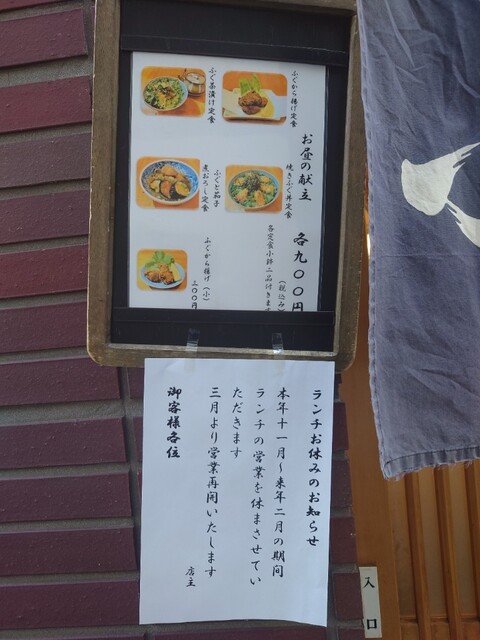 お昼の献立 各九〇〇円
(税込み)
各定食小鉢二品付きます
ふぐから揚げ定食
焼きふぐ丼定食
ふぐ茶漬け定食
ふぐと茄子
煮おろし定食
ふぐから揚げ(小)
三〇〇円
ランチお休みのお知らせ
本年十一月～来年二月の期間
ランチの営業を休まさせてい
ただきます
三月より営業再開いたします
店主
御客様各位
入口